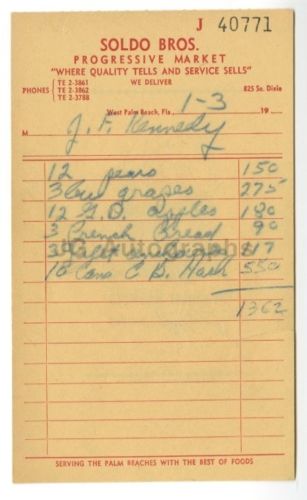 J 40771
SOLDO BROS.
PROGRESSIVE MARKET
"WHERE QUALITY TELLS AND SERVICE SELLS"
WE DELIVER
PHONES TE 2-3861
TE 2-3862
TE 2-3788
825 So. Dixie
West Palm Beach, Fla. 1-3 19
M J. F. Kennedy
12 pears 150
3 grapes 275
12 G. D. apples 180
3 French Bread 90
3 117
10 Cans C B. Hash 550
1362
Autographs
SERVING THE PALM BEACHES WITH THE BEST OF FOODS